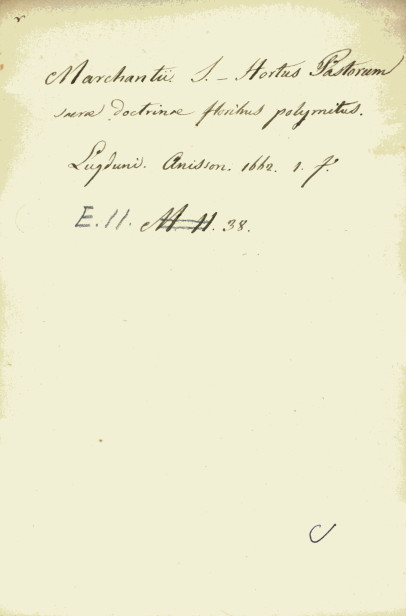 Marchantii J. - Hortus Pastorum
sacræ doctrinæ floribus polymitus.
Lugduni. Anisson. 1662. 1. f.º
E. 11. M. 11. 38.